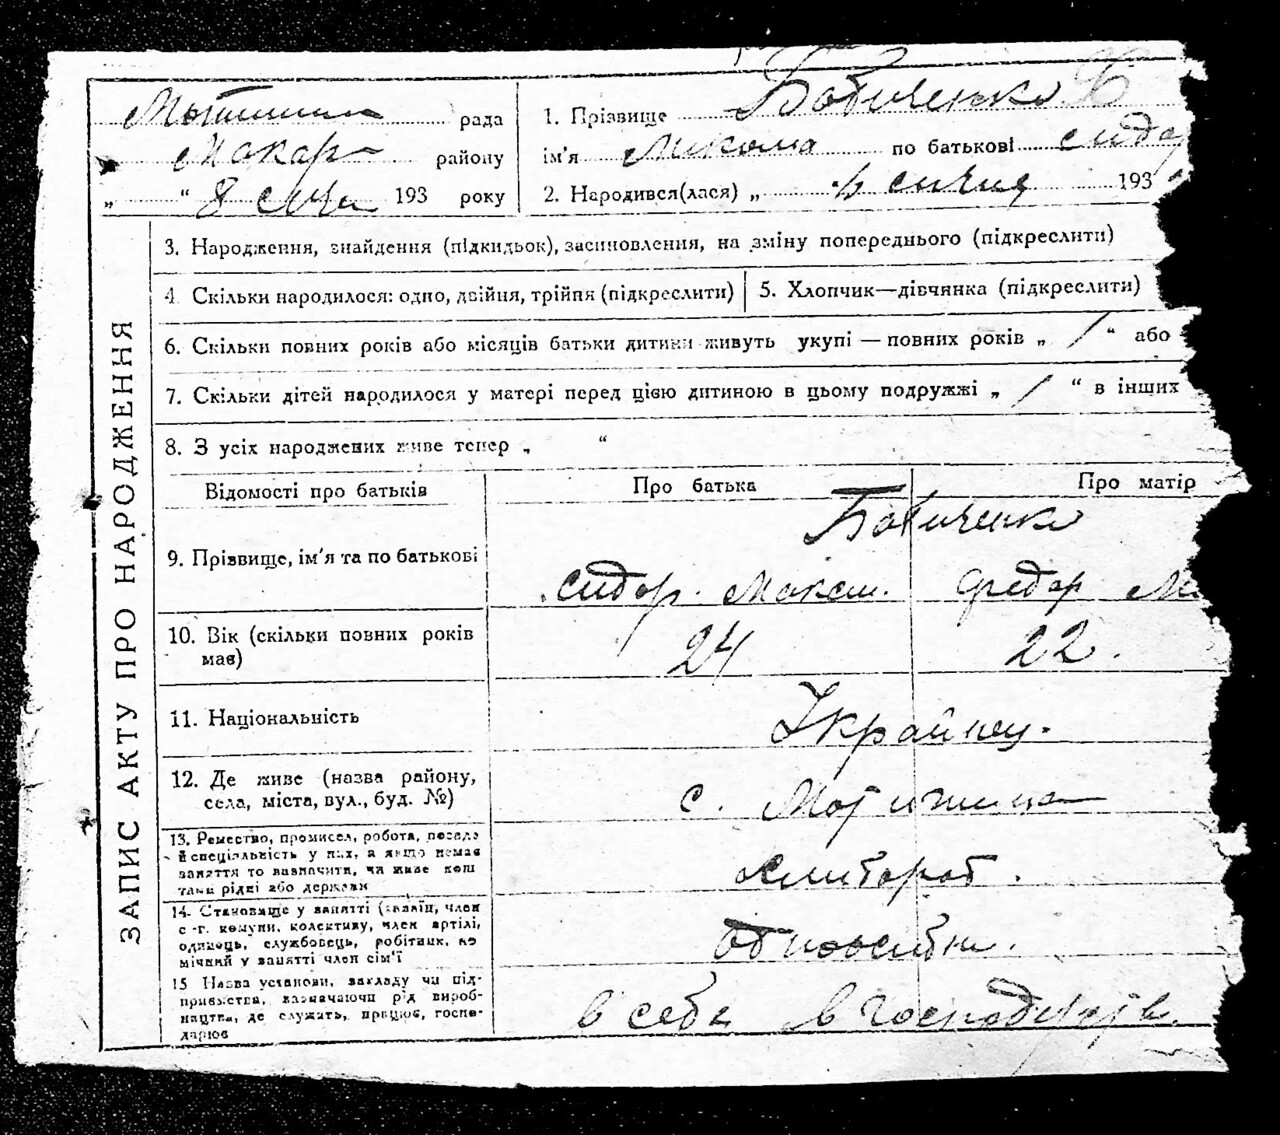 Мотижин рада
Макар району
„ “ 8 січн 193 року
1. Прізвище Бабиченко
ім'я Микола по батькові сидор
2. Народився(лася) „ січня 193
ЗАПИС АКТУ ПРО НАРОДЖЕННЯ
3. Народження, знайдення (підкидьок), засиновлення, на зміну попереднього (підкреслити)
4. Скільки народилося: одно, двійня, трійня (підкреслити)
5. Хлопчик—дівчянка (підкреслити)
6. Скільки повних років або місяців батьки дитини живуть укупі — повних років „ / “ або
7. Скільки дітей народилося у матері перед цією дитиною в цьому подружжі „ / “ в інших
8. З усіх народжених живе тепер „ “
Відомості про батьків Про батька Про матір
9. Прізвище, ім'я та по батькові
Бабиченко
сидор. Максим. федор
10. Вік (скільки повних років має)
24 22.
11. Національність
Украйнец.
12. Де живе (назва району,
села, міста, вул., буд. №)
с. Мотижин
13. Ремество, промисел, робота, посада
й спеціальність у них, а якщо немає
заняття то визначити, чи живе кош
тами рідні або держави
хлибороб.
14. Становище у занятті (хазяїн, член
с.-г. комуни, колективу, член артілі,
одинець, службовець, робітник, по
мічний у занятті член сім'ї
15 Назва установи, закладу чи під-
приємства, казначаючи рід вироб-
ництва, де служить, працює, госпо-
дарює
в себе в господарств.